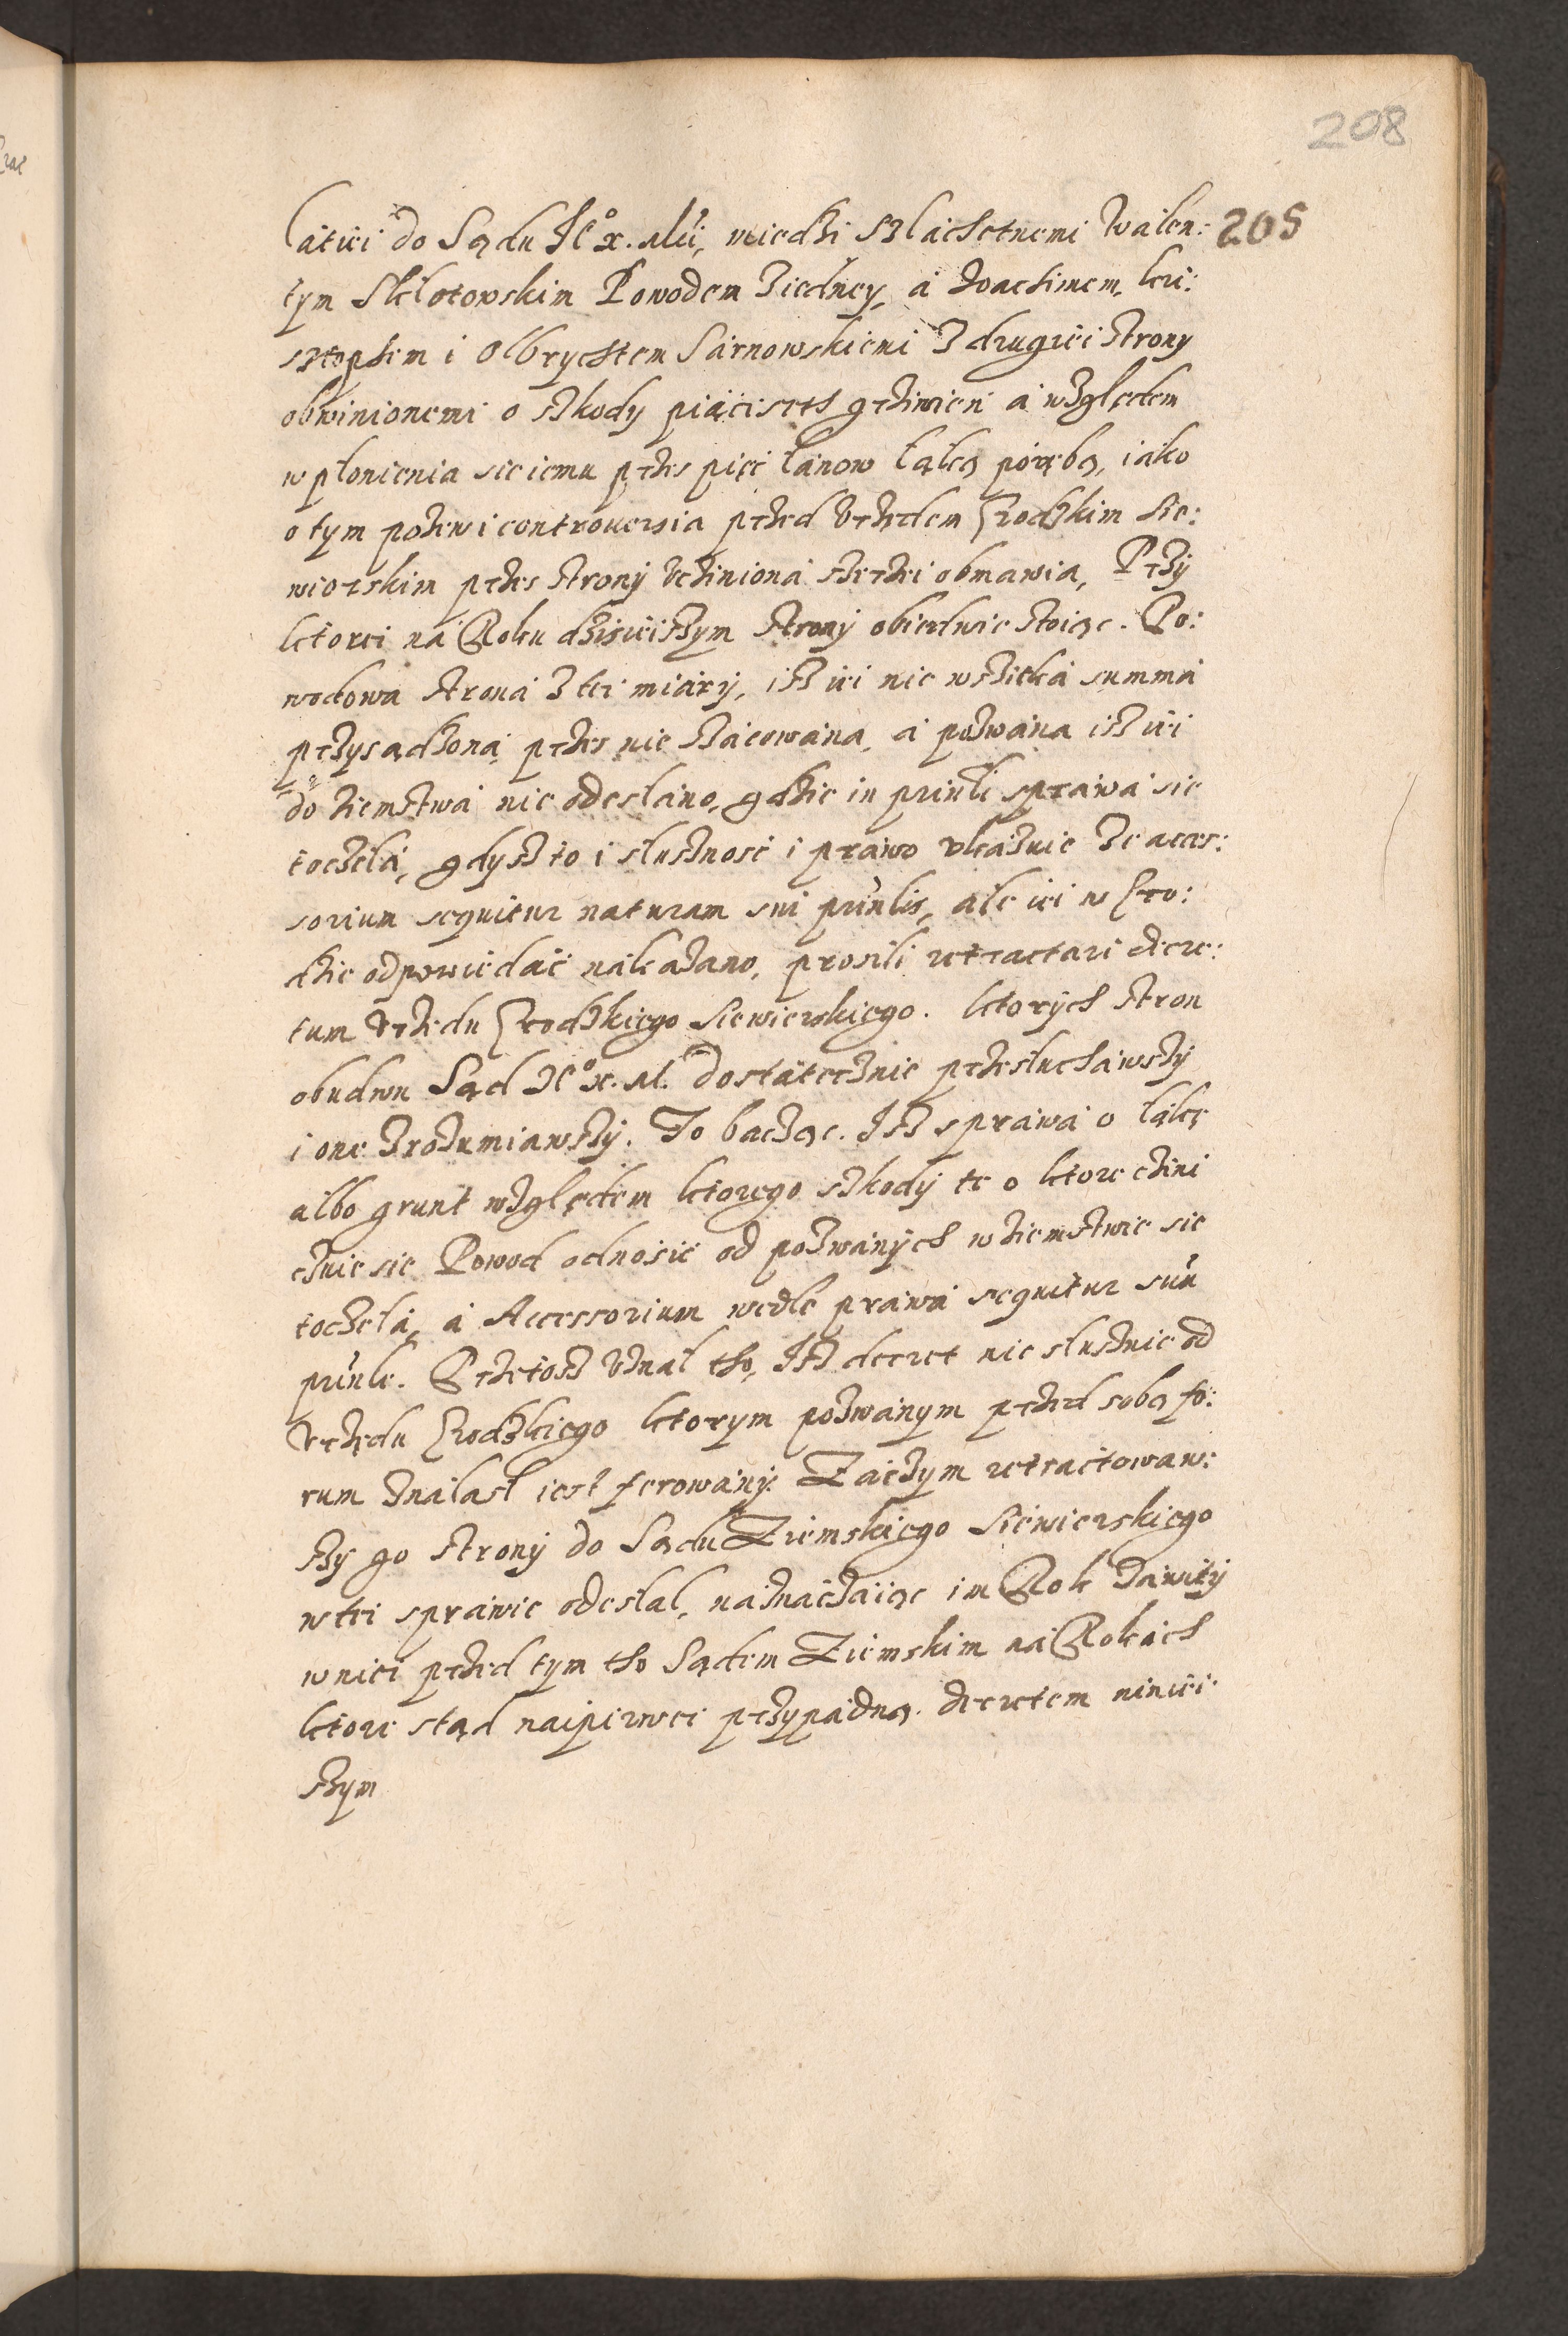 208
latiei do Sądu Je° x. Mći, miedzi Szlachetnemi Walen: 205
tym Sklotowskim Powodem z iedney, a Joachimem, kri:
sztophem i Olbrychtem Sarnowskiemi z drugiei strony
obwinionemi o szkody piąciseth grziwien a względem
wplonienia sie iemu przes pięć łanow łąką porębą, iako
o tym pozew i controuersia przed Vrzędem Grodzkim Sie:
wiorskim przes strony vcziniona szerzei obmawia, Przy
ktorei na Roku dzisieiszym strony obiedwie stoiąc. Po:
wodowa strona z tei miary, isz iei nie wszitka summa
przysądzona, przes nie szacowana, a pozwana isz iei
do ziemstwa nie odesłano, gdzie in prinli sprawa sie
toczela, gdysz to i słusznosc i prawo vkazuie ze acces:
sorium sequitur naturam sui prinlis, ale iei w Gro:
dzie odpowiedać nakazano, prosili retractari decre:
tum Vrzędu Grodzkiego Siewierskiego. ktorych stron
obudwu Sąd Je° x. M. dostatecznie przesłuchawszy
i one zrozumiawszy. To bacząc. Isz sprawa o łąkę
albo grunt względem ktorego szkody te o ktore czini
cznie sie Powod odnosić od pozwanych w ziemstwie sie
toczela, a Accessorium wedle prawa sequitur suu
prinle. Przetosz vznal tho, Isz decret nie słusznie od
Vrzędu Grodzkiego ktorym pozwanym przed sobą fo:
rum znalasł iest ferowany. Zaczym retractowaw:
szy go strony do Sądu Ziemskiego Siewierskiego
w tei sprawie odesłal, naznaczaiąc im Rok zawity
w niei przed tym tho Sądem Ziemskim na Rokach
ktore stąd naipierwei przypadną. decretem ninei:
szym